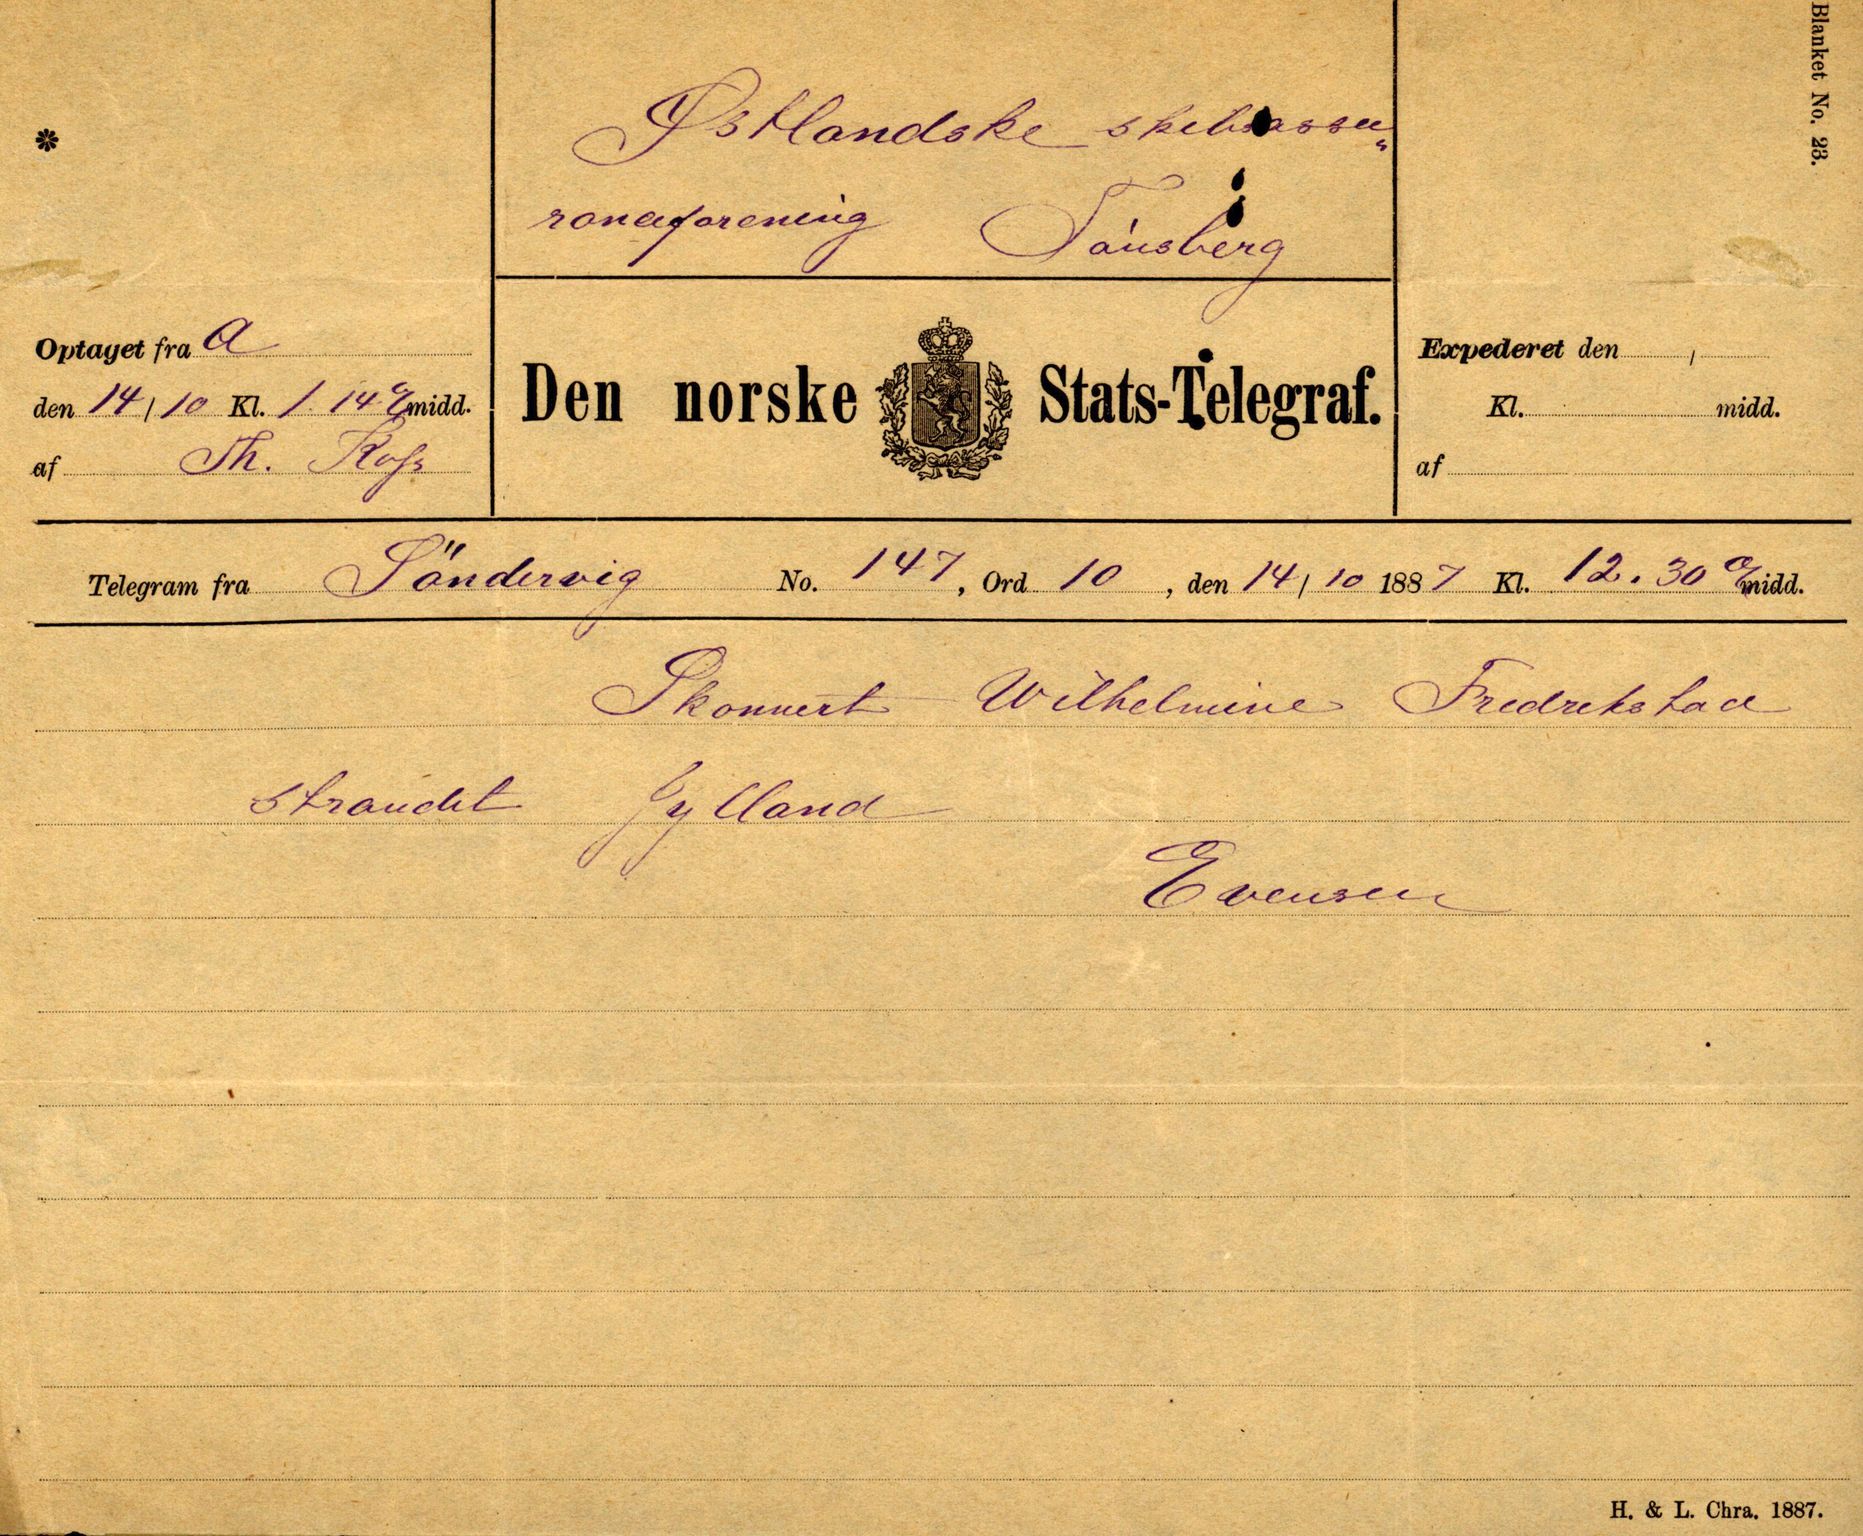 Blanket No. 23.
*
Østlandske skibsassu„
ranceforening Tönsberg
Optaget fra A
den 14/10 Kl. 1.14 e/midd.
af Th. Ross
Den norske Stats-Telegraf.
Expederet den /
Kl. midd.
af
Telegram fra Söndervig No. 147, Ord 10, den 14/10 1887 Kl. 12.30 e/midd.
Skonnert Wilhelmine Fredrikstad
strandet Jylland
Evensen
H. & L. Chra. 1887.